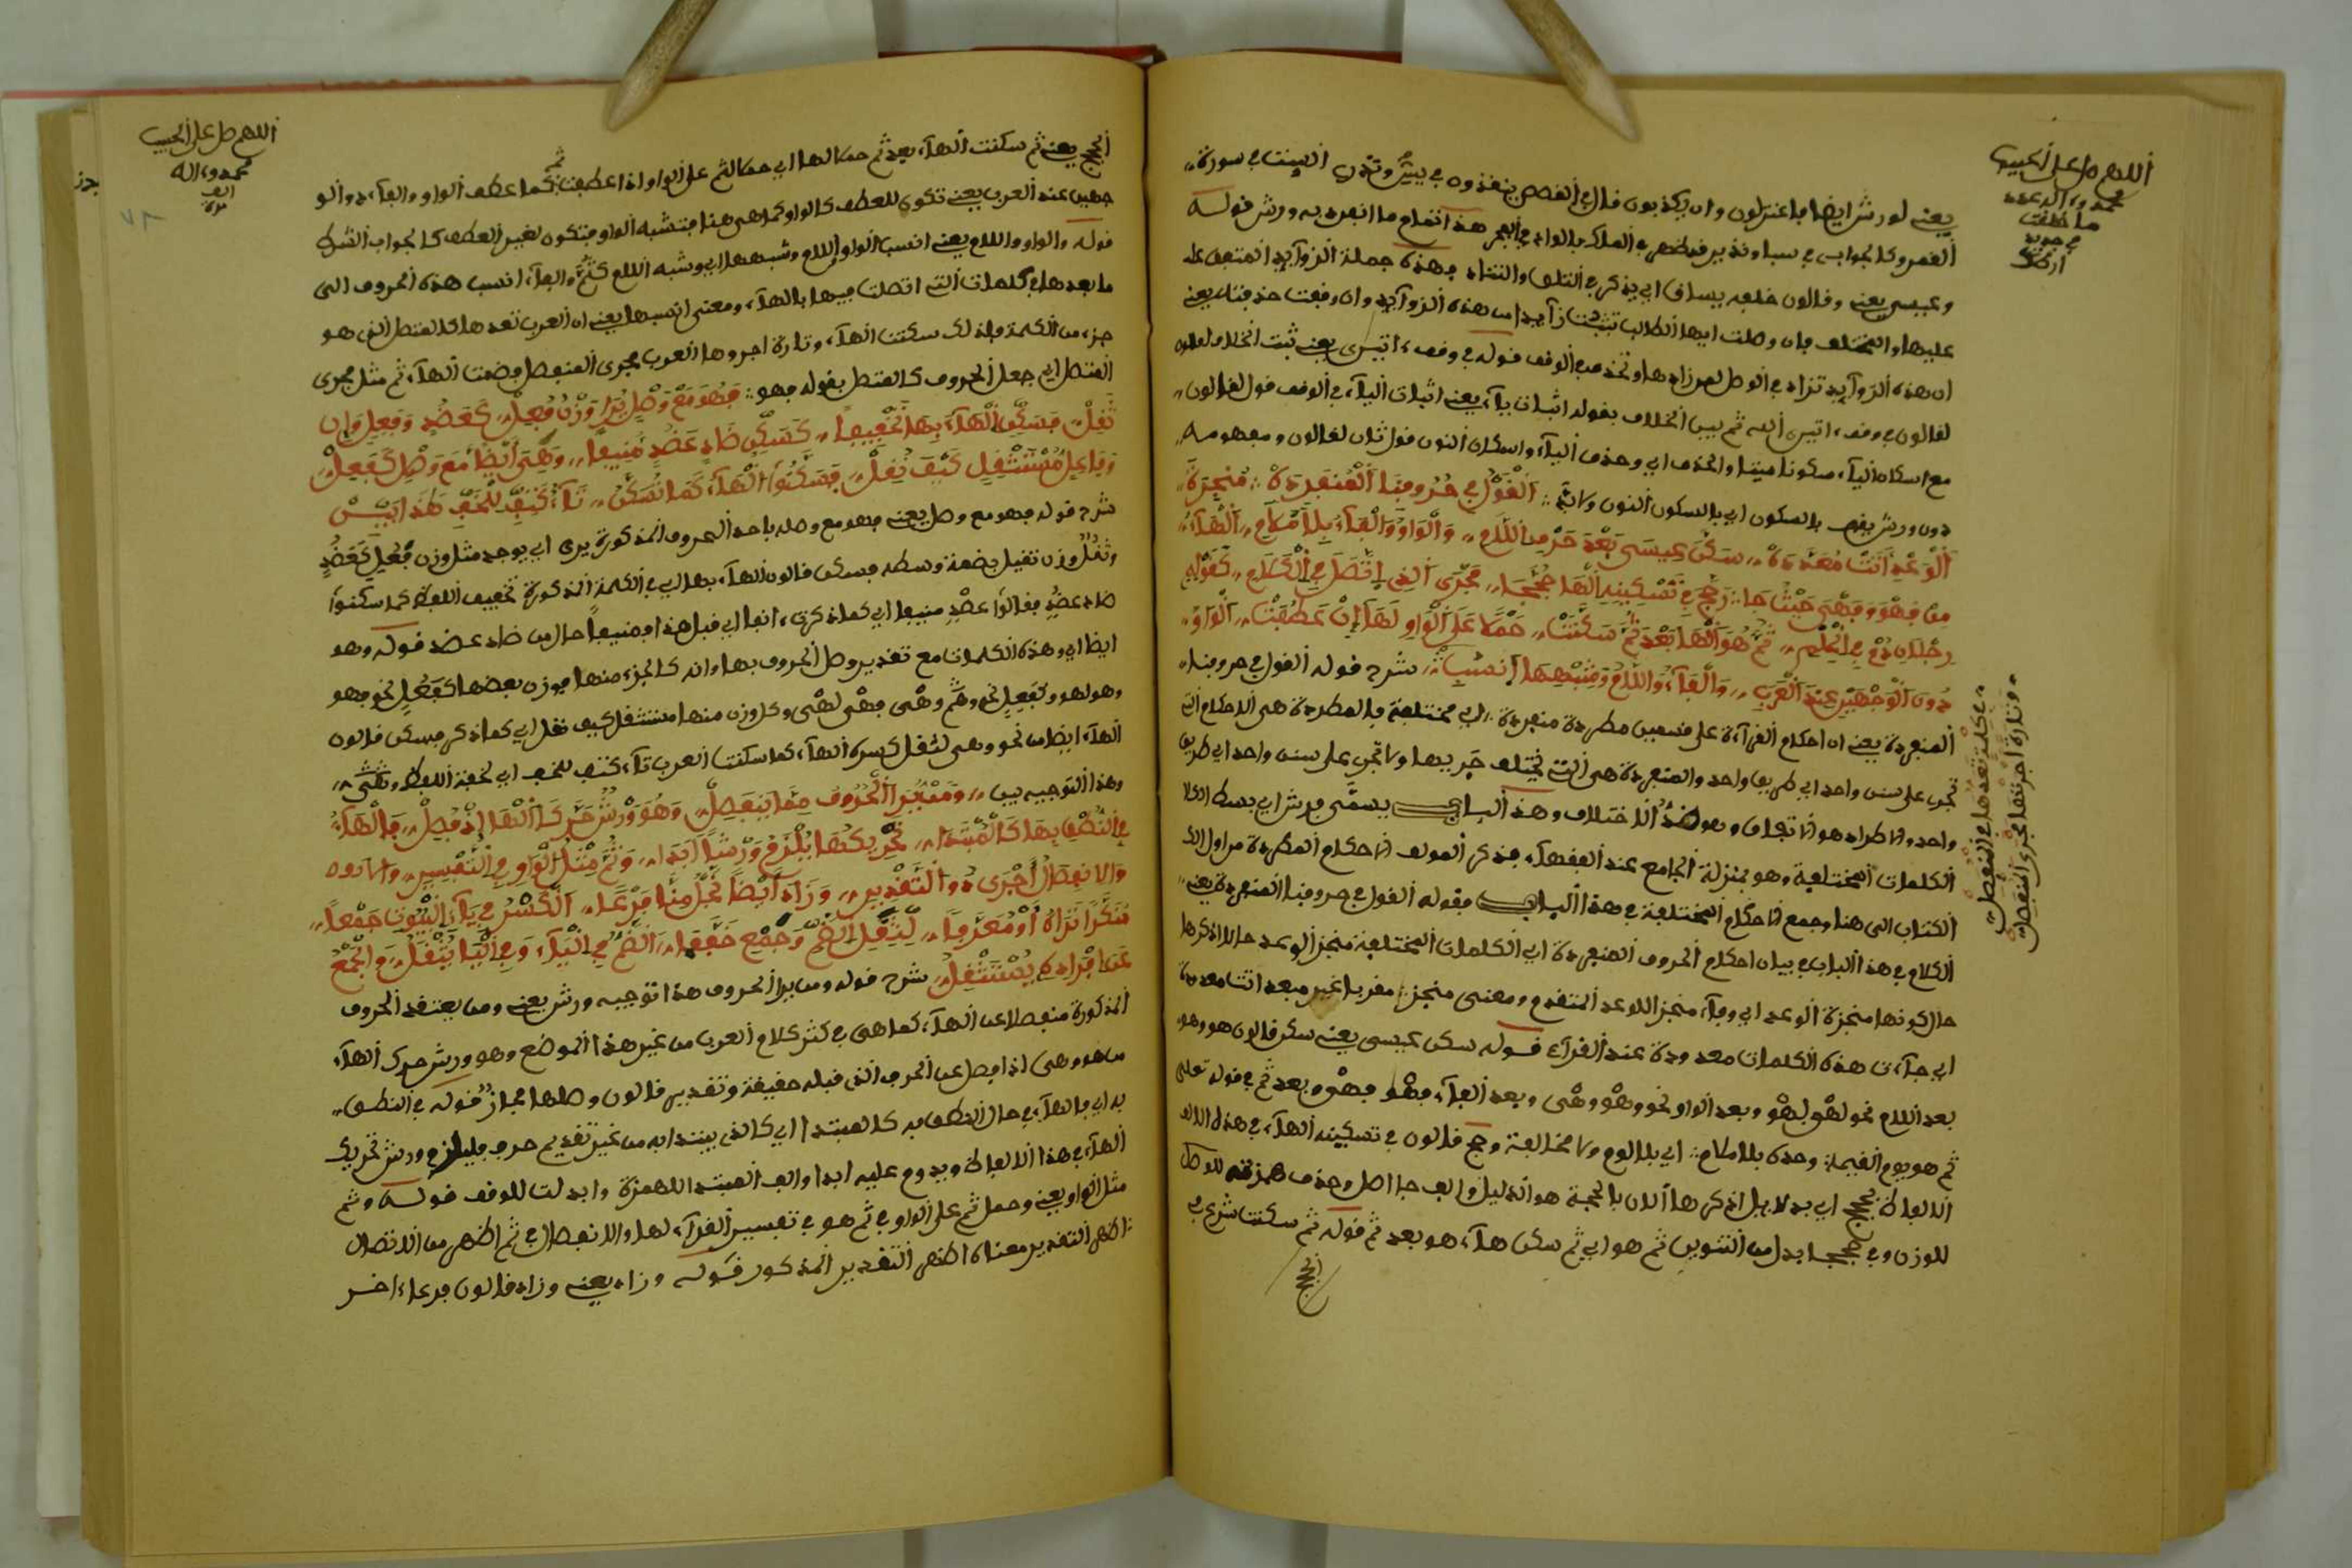 اللهم صل على الحبيب
محمد وءاله عدد
ما خلقت
يعني لورش ايضا فاعتزلون وان يكذبون قال في القصص ينقذون في يس
القمر وكالجواب في سبا ونذير في الملك بالواد في الفجر هذا تمام ما انفرد به ورش قوله
وعيسى يعني وقالون خلفه يساق اي يذكر في التلاق والتناد فهذه جملة الزوآيد المتفق على
عليها والمختلف فان وصلت ايها الطالب من هذه الزوآيد وان وقفت حذفت يعني
ان هذه الزوآيد تزاد في الوصل لمن زادها وتحذف في الوقف قوله في وقف ءاتين يعني ثبت الخلاف لقالون
لقالون في وقف ءاتين الله ثم بين الخلاف بقوله اثبات يآء يعني اثبات اليآء في الوقف قول لقالون
مع اسكان اليآء سكونا ميتا والحذف اي وحذف اليآء واسكان النون قول ثان لقالون ومفهومه
دون ورش يقف بالسكون اي بالسكون النون ∴ القول في حروفنا المنفردة ∴ منجزة
الوعد اتت معددة سكن عيسى بعد حرف اللام والواو والفآء بلا ملام الهآء
من فهو وفهي حيث جا رجح في تسكينه الها حججا مجرى الذي اتصل في الكلام كقولهم
رجلان دم في الحلم ثم هو الها بعد ثم سكنت حملا على الواو لها ان عطفت الواو
دون الوجهين عند العرب والفآء واللام وشبهها انسب شرح قوله القول في حروفنا
المنفردة يعني ان احكام القرآءة على قسمين مطردة منفردة اي مختلفة فالمطردة هي الاحكام التي
تجري على سنن واحد اي طريق واحد والمنفردة هي التي تختلف جريها ولا تجري على سنن واحد اي طريق
واحد والاطراد هو الاتفاق وهو ضد الاختلاف وهذا الباب يسمى فرش اي بسط
الكلمات المختلفة وهو بمنزلة الجامع عند الفقهآء فذكر المولف الاحكام المطردة من اول
الكتاب الى هنا وجمع الاحكام المختلفة في هذا الباب فقوله القول في حروفنا المنفردة يعني
الكلام في هذا الباب في بيان احكام الحروف المنفردة اي الكلمات المختلفة منجز الوعد حال اذكرها
حال كونها منجزة الوعد اي وفآء منجز للوعد المتقدم ومعنى منجز مقربا غير مبعد اتت معددة
اي جآءت هذه الكلمات معدودة عند القرآء قوله سكن عيسى يعني سكن قالون هو وهي
بعد اللام نحو لهو لهو وبعد الواو نحو وهو وهي وبعد الفآء فهو فهي وبعد ثم في قوله تعلى
ثم هو يوم القيمة وحده بلا ملام اي بلا لوم ولا مخالفة وحج قالون في تسكينه الهآء في هذه
الالفاظ بحجج اي بدلايل اذكرها الان بالحجة هو الدليل والف جا اصل وحذف همزته للوصل
للوزن وفي حججا بدل من التنوين ثم هو اي ثم سكن هآء هو بعد ثم قوله ثم سكنت شرع في
وتارة اجرتها مجرى المنفصل
في كلمة تعدها في المنفصل
اللهم صل على الحبيب
محمد وءاله
الحجج يعني ثم سكنت الهآء بعد ثم حملا لها اي حملا لثم على الواو اذا عطفت كما عطف الواو والفآء دون الو
جهين عند العرب يعني تكون للعطف كالواو كما هي هنا فتشبه الواو وتكون لغير العطف كالجواب الشرط
قوله والواو واللام يعني انسب الواو اللام وشبهها اي وشبه اللام كثم والفآء انسب هذه الحروف الى
ما بعدها في كلمات التي اتصلت فيها بالهآء ومعنى انسبها يعني ان العرب تعدها كالمتصل الذي هو
جزء من الكلمة فلذلك سكنت الهآء وتارة اجروها العرب مجرى المنفصل فضمت الهآء ثم مثل مجرى
المتصل اي جعل الحروف كالمتصل بقوله فهو ∴ فهو مع وصل يرا وزن فعل كعضد وفعل وان
ثقل فسكن الهآء بها تخفيفا كسكن ضاد عضد منيفا وهي ايضا مع وصل كفعل
وفاعل مستثقل كيف نقل فسكنوا الهآء كما تسكن تآء كتف للخف هذا يبين
شرح قوله فهو مع وصل يعني فهو مع وصله باحد الحروف المذكورة يرى اي يوجد مثل وزن فعل كعضد
وثقل وزن ثقيل بضمة وسطه فسكن قالون الهآء بها اي في الكلمة المذكورة تخفيف اللفظ كما سكنوا
ضاد عضد فقالوا عضد منيفا اي كما ذكرته ءانفا اي قبل هذا ومنيفا حال من ضاد عضد قوله وهو
ايضا اي وهذه الكلمات مع تقدير وصل الحروف بها وانه كالجزء منها فوزن بعضها كفعل نحو فهو
وهو لهو وكفعل نحو وهي فهي لهي وكل وزن منها مستثقل كيف نقل اي كما ذكر فسكن قالون
الهآء ايضا من نحو وهي لثقل كسرة الهآء كما سكنت العرب تآء كتف للخف اي لخفة اللفظ
وهذا التوجيه بين ومن يرا الحروف مما ينفصل وهو ورش حرك الها اذ فصل فالهآء
في النطق بها كالمبتدا تحريكها يلزم ورشا ابدا وثم مثل الواو في التفسير
والانفصال اجرى ذو التقدير وزاد ايضا فرعا الكسر في بآء البيوت جمعا
منكرا تراه او معرفا لثقل الضم وجمع خففا الضم في اليآء وفي اليا يثقل والجمع
عن افراده يستثقل شرح قوله ومن يرا الحروف هذا توجيه ورش يعني ومن يعتقد الحروف
المذكورة منفصلا عن الهآء كما هي في كثر كلام العرب من غير هذا الموضع وهو ورش حرك الهآء
من هو وهي اذا فصل عن الحرف الذي قبله حقيقة وتقدير قالون وصلها مجاز قوله في النطق
به اي فالهآء في حال النطق به كالمبتدا اي كالذي يبتدا به من غير تقديم حرف فيلزم ورش تحريك
الهآء في هذا الالفاظ ويدوم عليه ابدا والف المبتدا للهمزة وابدلت للوقف قوله وثم
مثل الواو يعني وحمل ثم على الواو في ثم هو في تفسير القرآء لها والانفصال في ثم اظهر من الاتصال
اظهر التقدير معناه اظهر التقدير المذكور قوله وزاد يعني وزاد قالون فرعا ءاخر